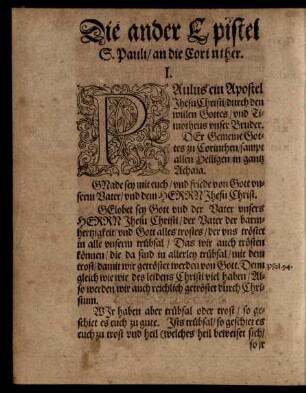 Die ander Epistel
S. Pauli/ an die Corinther.
I.
PAulus ein Apostel
Jhesu Christi/ durch den
willen Gottes/ vnd Ti-
motheus vnser Bruder.
DEr Gemeine Got-
tes zu Corinthen/ sampt
allen Heiligen in gantz
Achaia.
GNade sey mit euch/ vnd friede von Gott vn-
serm Vater/ vnd dem HERRN Jhesu Christ.
GElobet sey Gott vnd der Vater vnsers
HERRN Jhesu Christ/ der Vater der barm-
hertzigkeit/ vnd Gott alles trostes/ der vns tröstet
in alle vnserm trübsal/ Das wir auch trösten
können/ die da sind in allerley trübsal/ mit dem
trost/ damit wir getröstet werden von Gott. Denn
Psal. 94.
gleich wie wir des leidens Christi viel haben/ Al-
so werden wir auch reichlich getröstet durch Chri-
stum.
WIr haben aber trübsal oder trost/ so ge-
schiet es euch zu gute. Ists trübsal/ so geschiet es
euch zu trost vnd heil (welches heil beweiset sich/
so jr